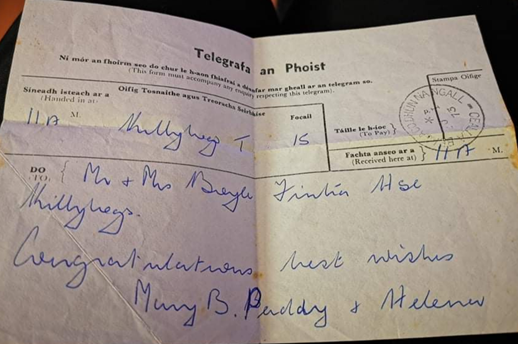 Telegrafa an Phoist
Ní mór an fhoirm seo do chur le h-aon fhiafraí a déufar mar gheall ar an telegram so.
(This form must accompany any enquiry respecting this telegram).
Stampa Oifige
Síneadh isteach ar a
(Handed in at)
Oifig Tosnaithe agus Treoracha Seirbhíse
Focail
11A M. Killybegs T 15
Táille le h-íoc
(To Pay)
Fachta anseo ar a
(Received here at)
11A M.
DO
(TO.
Mr + Mrs Boyle Fintra Hse
Killybegs.
Congratulations best wishes
Mary B. Paddy & Helena